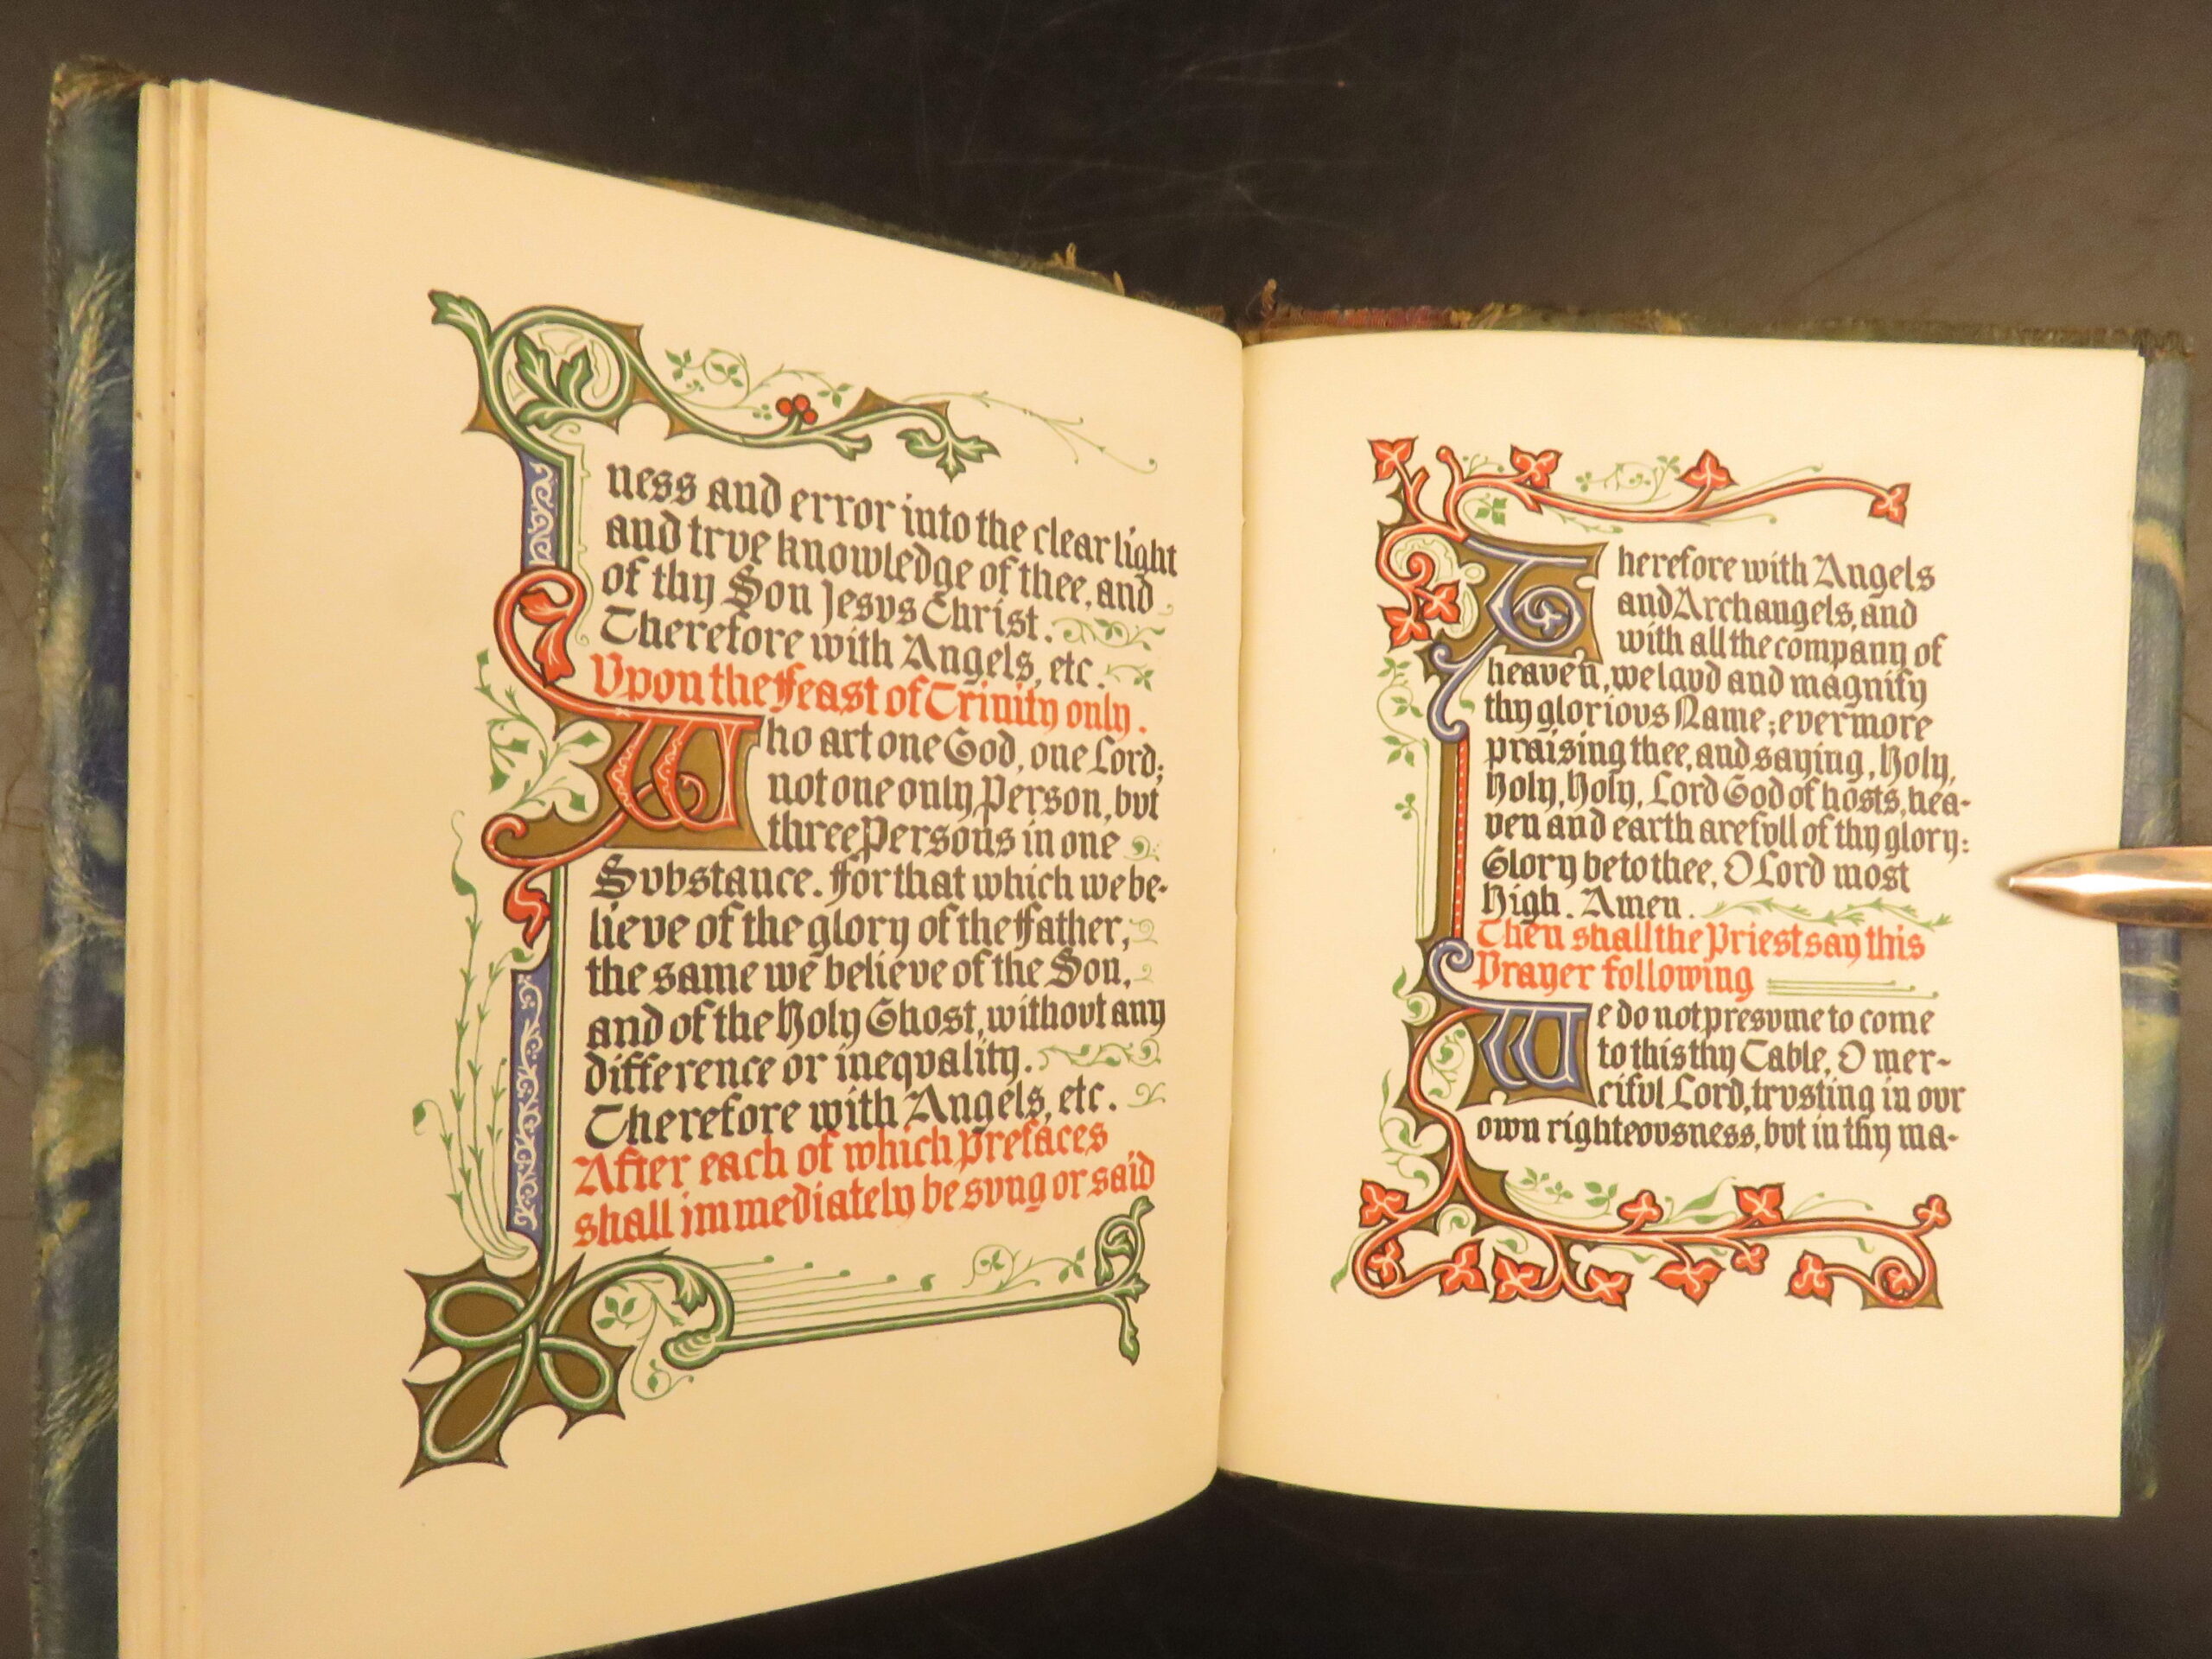 ness and error into the clear light
and trve knowledge of thee, and
of thy Son Jesvs Christ.
Therefore with Angels, etc.
Vpon the Feast of Trinity only.
Who art one God, one Lord;
not one only Person, bvt
three Persons in one
Svbstance. For that which we be-
lieve of the glory of the Father,
the same we believe of the Son,
and of the Holy Ghost, withovt any
difference or ineqvality.
Therefore with Angels, etc.
After each of which Prefaces
shall immediately be svng or said
Therefore with Angels
and Archangels, and
with all the company of
heaven, we lavd and magnify
thy gloriovs Name; evermore
praising thee, and saying, Holy,
Holy, Holy, Lord God of hosts, hea-
ven and earth are fvll of thy glory:
Glory be to thee, O Lord most
High. Amen.
Then shall the Priest say this
Prayer following
We do not presvme to come
to this thy Table, O mer-
cifvl Lord, trvsting in ovr
own righteovsness, bvt in thy ma-